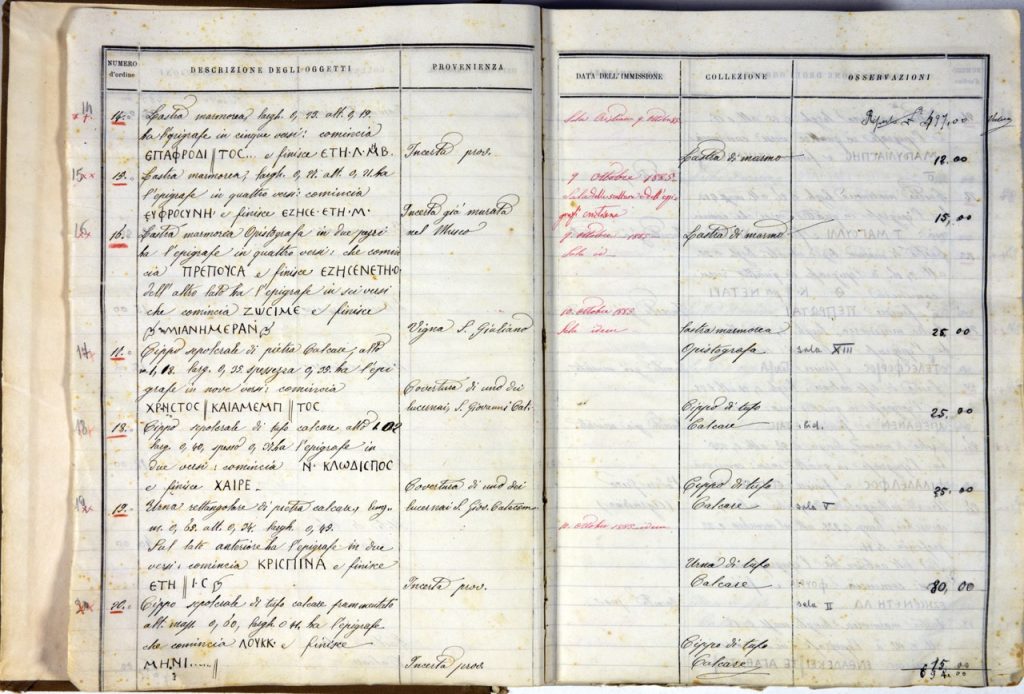 NUMERO d'ordine
DESCRIZIONE DEGLI OGGETTI
PROVENIENZA
DATA DELL'IMMISSIONE
COLLEZIONE
OSSERVAZIONI
Riporto L 477,00
14 14. Lastra marmorea, largh. 0, att. 0, 19.
ha l'epigrafe in cinque versi: comincia
ЄΠΑΦΡΟΔΙ | ΤΟC... e finisce ЄΤΗ·Λ·ΜΒ. Incerta prov. Lastra di marmo 12.00
15 15. Lastra marmorea, largh. 0, att. 0, ha
l'epigrafe in quattro versi: comincia
9 Ottobre 1885
ЄΥΦΡΟCΥΝΗ e finisce ЄΖΗCЄ·ЄΤΗ·Μ· Incerta già murata
16 16. Lastra marmorea Opistografa in due pezzi nel Museo Lastra di marmo 15,00
9 ottobre 1885
ha l'epigrafe in quattro versi: che comin
Sala id.
cia ΠΡЄΠΟΥCΑ e finisce ЄΖΗCЄΝЄΤΗ·Ο
dell'altro lato ha l'epigrafe in sei versi
che comincia ΖѠCΙΜЄ e finisce
10 ottobre 1885
ΜΙΑΝΗΜΕΡΑΝ Vigna S. Giuliano
Sala idem
Lastra marmorea 25.00
17 17. Cippo sepolcrale di pietra calcare, alto
Opistografa sala XIII
m 1, 18. larg. 0, 35 spessezza 0, 35. ha l'epi
grafe in nove versi: comincia Covertura di uno dei
ΧΡΗCΤΟC | ΚΑΙΑΜЄΜΠ || ΤΟC. lucernai, S. Giovanni Cat. Cippo di tufo 25.00
18 18. Cippo sepolcrale di tufo calcare alto 1.02 Calcare ibid.
larg. 0, 40, spesso 0, ha l'epigrafe in
due versi: comincia Ν· ΚΛѠΔΙCΠΟC
e finisce ΧΑΙΡЄ. Covertura di uno dei Cippo di tufo 25,00
19 19. Urna rettangolare di pietra calcare, lung. lucernai S. Giov. Catacom. Calcare sala V
m. 0, 65. att. 0, 34. largh. 0, 45. 10 ottobre 1885 idem
Sul lato anteriore ha l'epigrafe in due
versi: comincia ΚΡΙCΠΙΝΑ e finisce Urna di tufo
ЄΤΗ || Ι·C Incerta prov. Calcare 80,00
20 20. Cippo sepolcrale di tufo calcare frammentato sala II
att. mass. 0, 60, largh. 0 ha l'epigrafe
che comincia ΛΟΥΚΚ· e finisce Cippo di tufo
ΜΗ.ΝΙ...... Incerta prov. Calcare 15.00
694.00